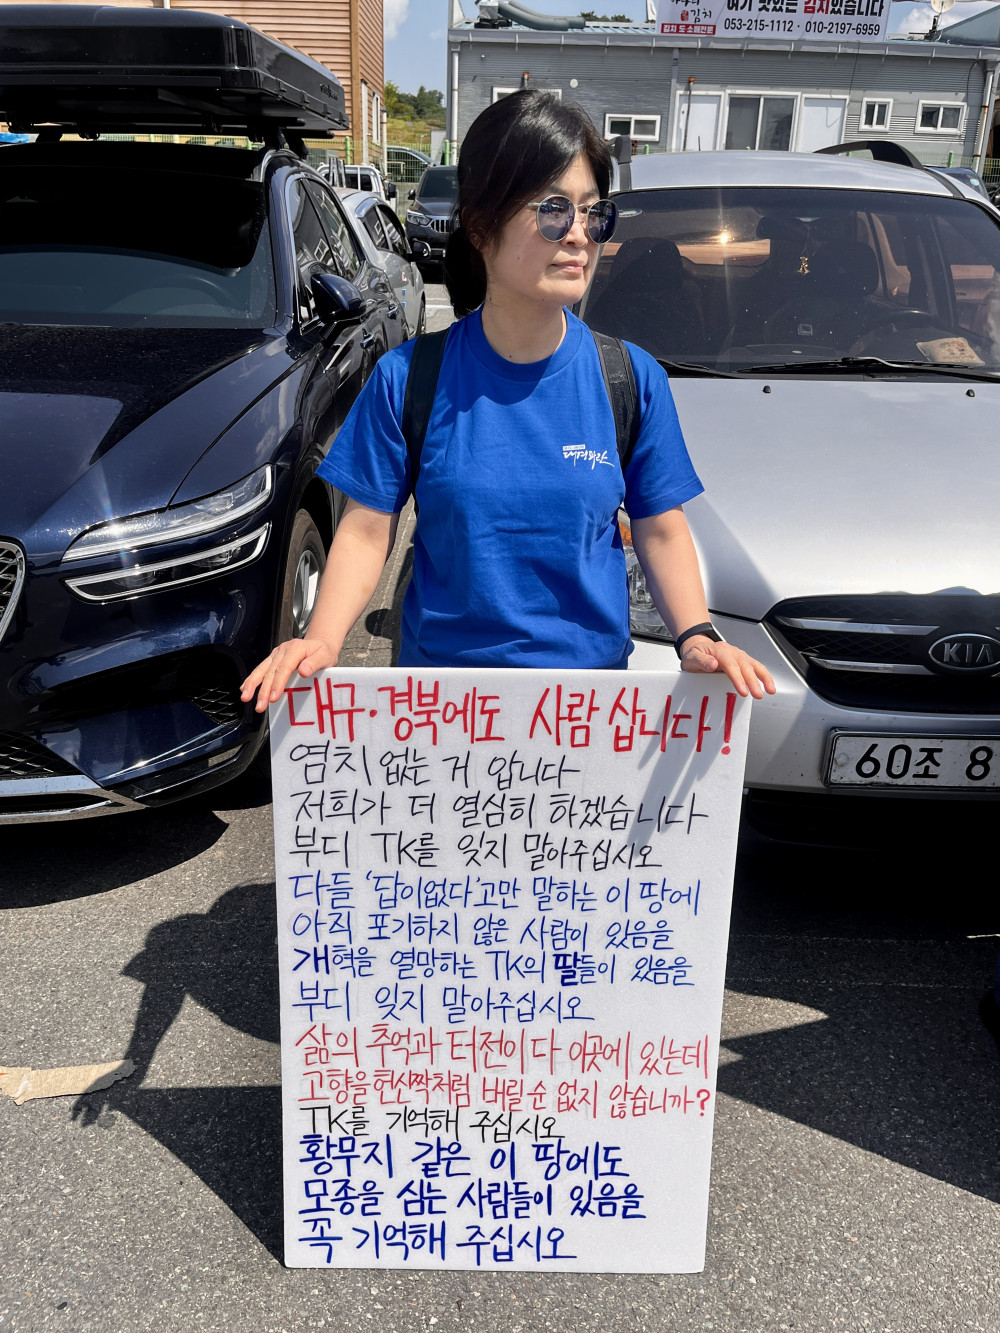 여기 맛있는 김치있습니다
김치
김치 도·소매전문
053-215-1112 · 010-2197-6959
대경파란
대구·경북에도 사람 삽니다!
염치 없는 거 압니다
저희가 더 열심히 하겠습니다
부디 TK를 잊지 말아주십시오
다들 '답이없다'고만 말하는 이 땅에
아직 포기하지 않은 사람이 있음을
개혁을 열망하는 TK의 딸들이 있음을
부디 잊지 말아주십시오
삶의 추억과 터전이 다 이곳에 있는데
고향을 헌신짝처럼 버릴순 없지 않습니까?
TK를 기억해 주십시오
황무지 같은 이 땅에도
모종을 심는 사람들이 있음을
꼭 기억해 주십시오
KIA
60조 8